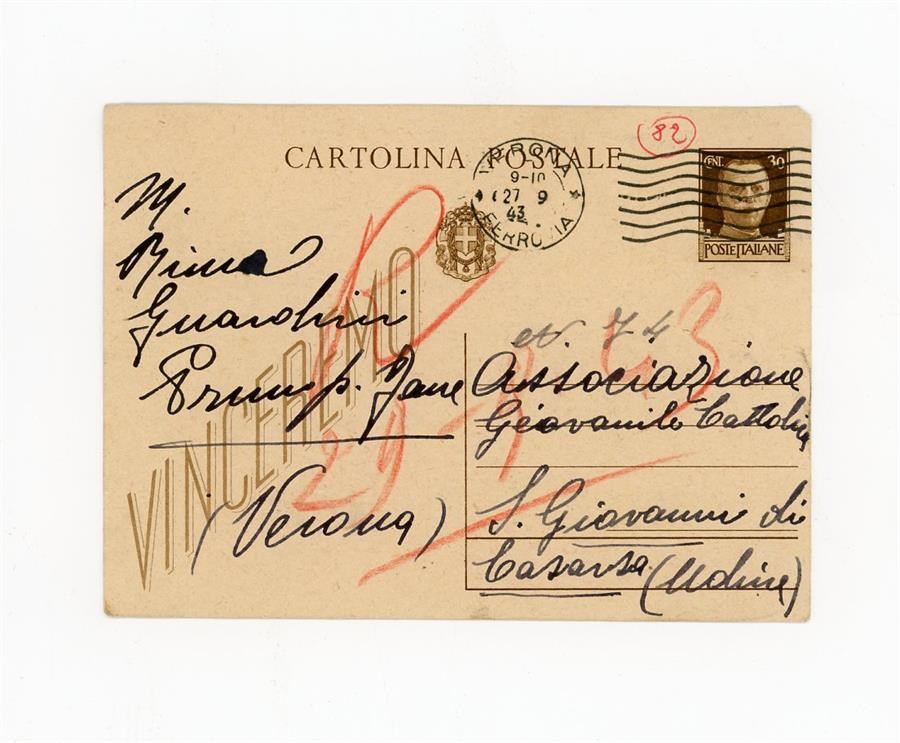 CARTOLINA POSTALE
82
VERONA
9-10
27 9
43
FERROVIA
CENT. 30
POSTE ITALIANE
VINCEREMO
M.
Guardini
(Verona)
N. 74
Associazione
Giovanile Cattolica
S. Giovanni di
Casarsa (Udine)